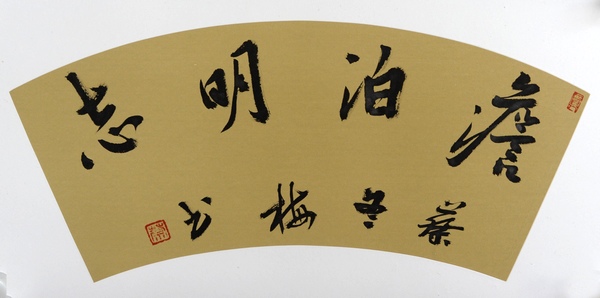 澹泊明志
蔡冬梅书